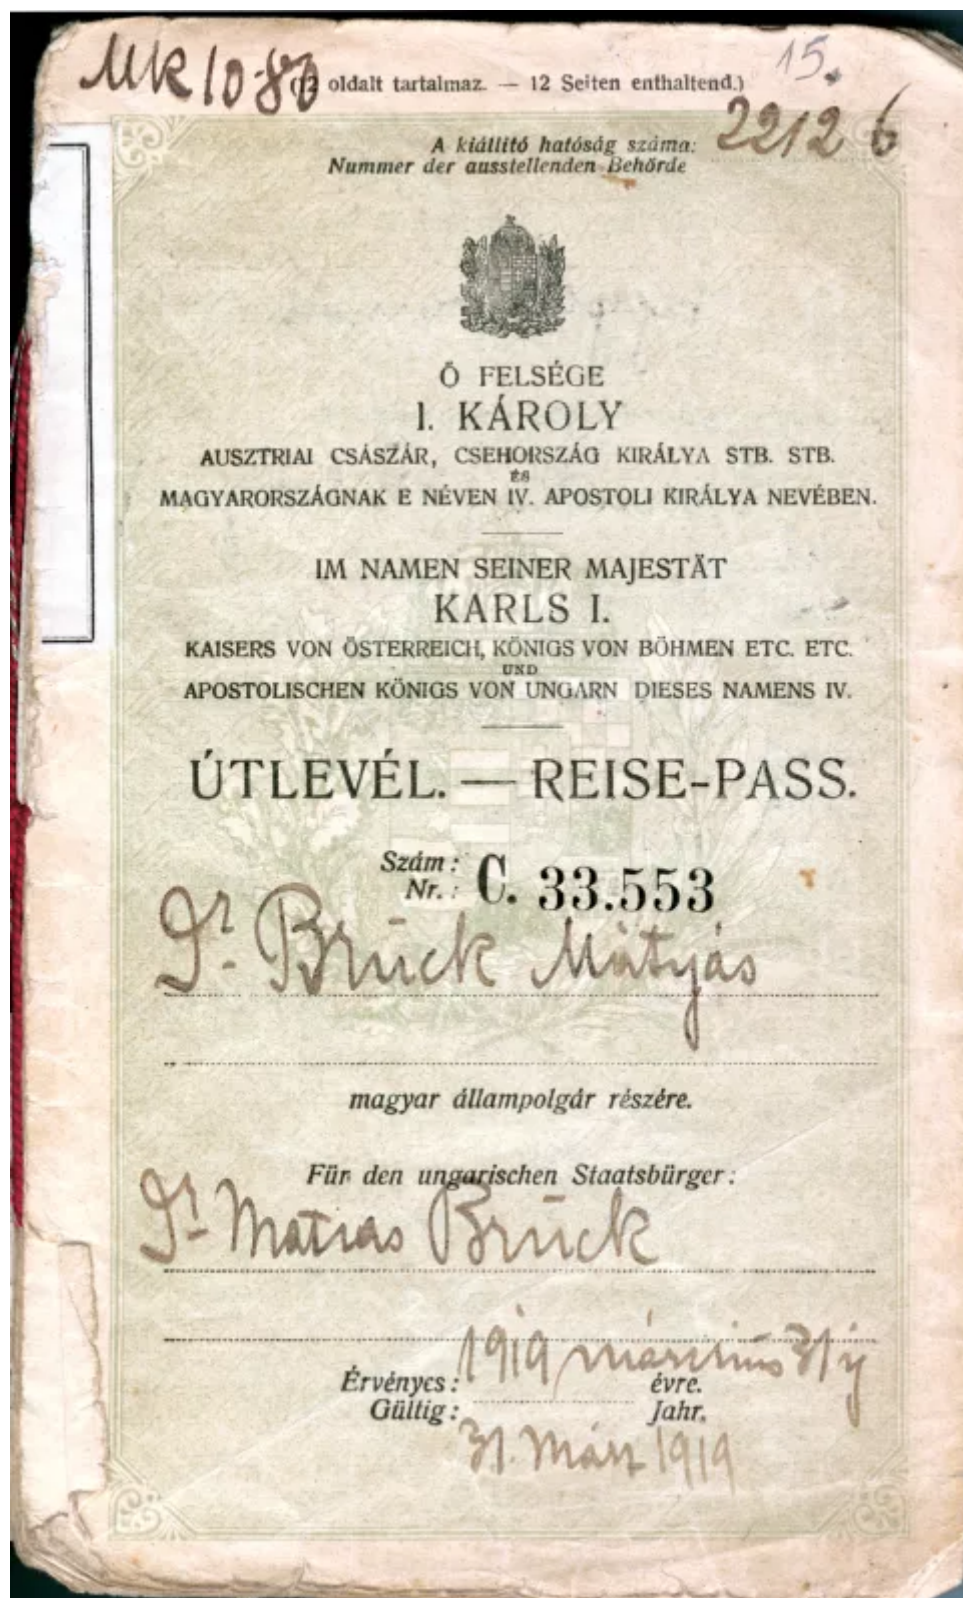 MK 10·80
15.
(12 oldalt tartalmaz. — 12 Seiten enthaltend.)
A kiállitó hatóság száma: 2212 6
Nummer der ausstellenden Behörde
Ő FELSÉGE
I. KÁROLY
AUSZTRIAI CSÁSZÁR, CSEHORSZÁG KIRÁLYA STB. STB.
ÉS
MAGYARORSZÁGNAK E NÉVEN IV. APOSTOLI KIRÁLYA NEVÉBEN.
IM NAMEN SEINER MAJESTÄT
KARLS I.
KAISERS VON ÖSTERREICH, KÖNIGS VON BÖHMEN ETC. ETC.
UND
APOSTOLISCHEN KÖNIGS VON UNGARN DIESES NAMENS IV.
ÚTLEVÉL. — REISE-PASS.
Szám:
Nr.: C. 33.553
Dr. Brück Mátyás
magyar állampolgár részére.
Für den ungarischen Staatsbürger:
Dr. Matias Brück
1919 március 31 ig
Érvényes: évre.
Gültig: Jahr.
31. März 1919